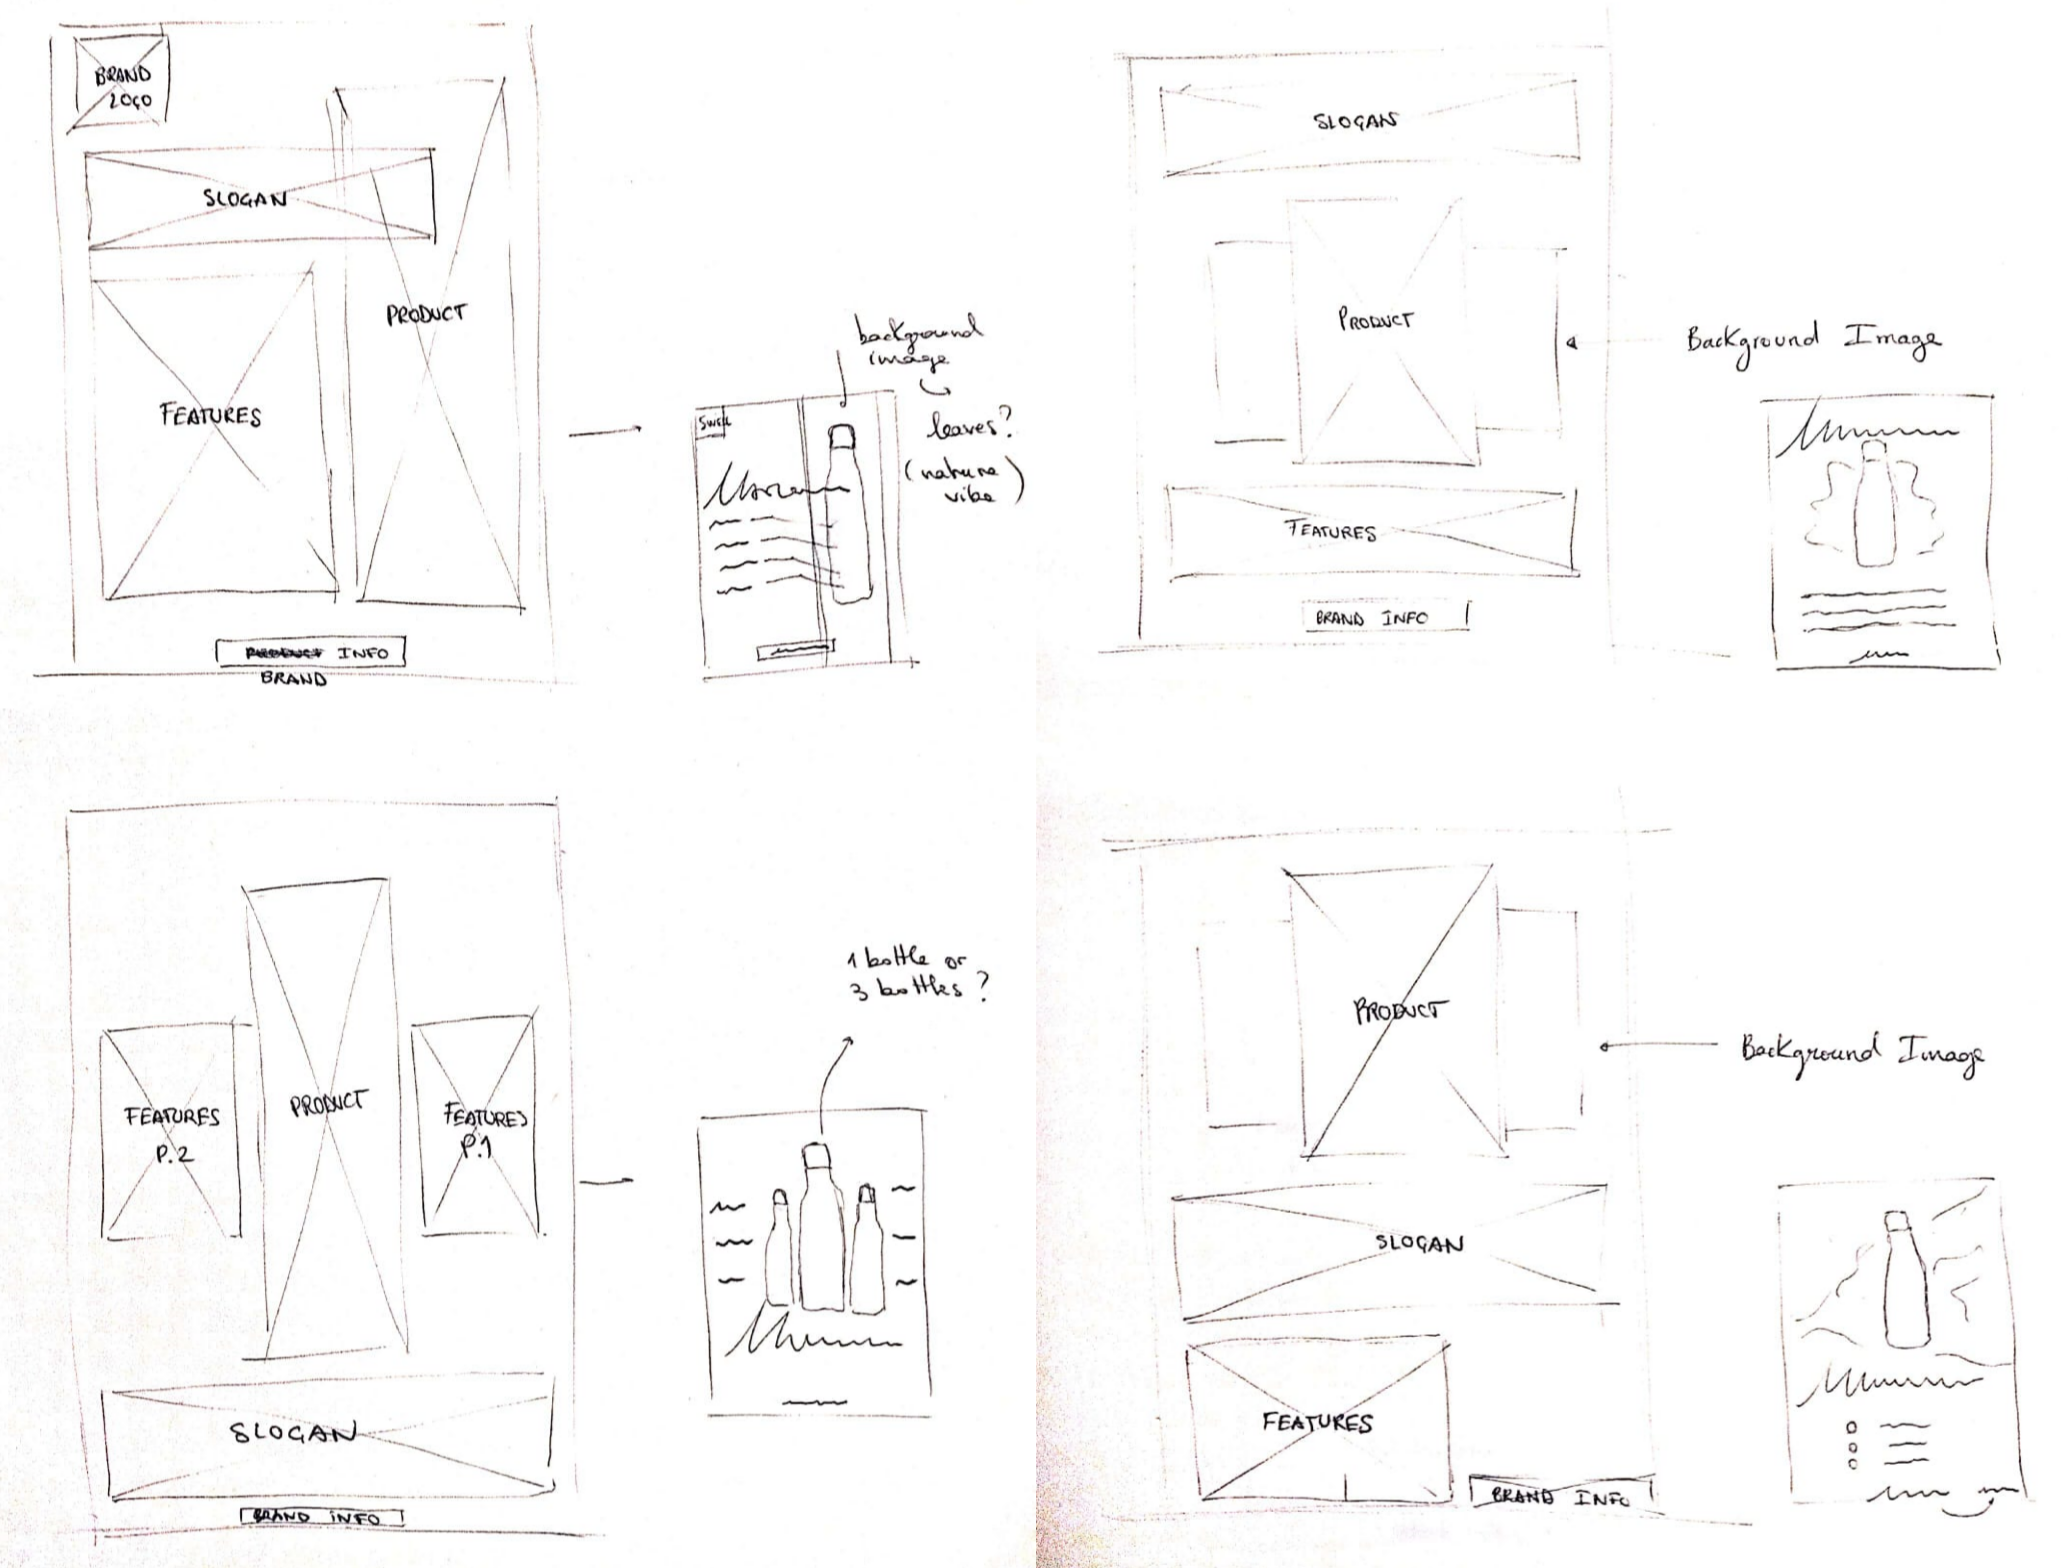 BRAND
LOGO
SLOGAN
PRODUCT
FEATURES
INFO
BRAND
background
image
leaves?
(nature
vibe)
Swell
SLOGAN
PRODUCT
Background Image
FEATURES
BRAND INFO
FEATURES
P.2
PRODUCT
FEATURES
P.1
SLOGAN
BRAND INFO
1 bottle or
3 bottles?
PRODUCT
Background Image
SLOGAN
FEATURES
BRAND INFO